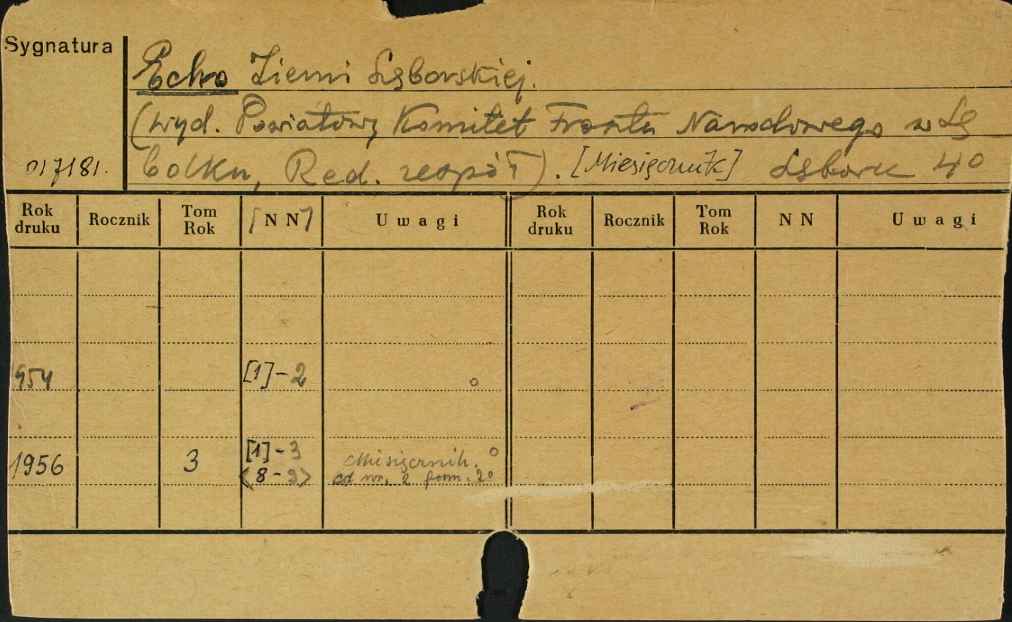 Sygnatura
Echo Ziemi Lęborskiej.
(wyd. Powiatowy Komitet Frontu Narodowego w Lę
017181. borku, Red. zespół). [Miesięcznik] Lębork 4°
Rok druku Rocznik Tom Rok [NN] Uwagi Rok druku Rocznik Tom Rok NN Uwagi
954 [1]-2 °
1956 3 [1]-3 Miesięcznik. °
<8-9> od nr. 2 form. 2°